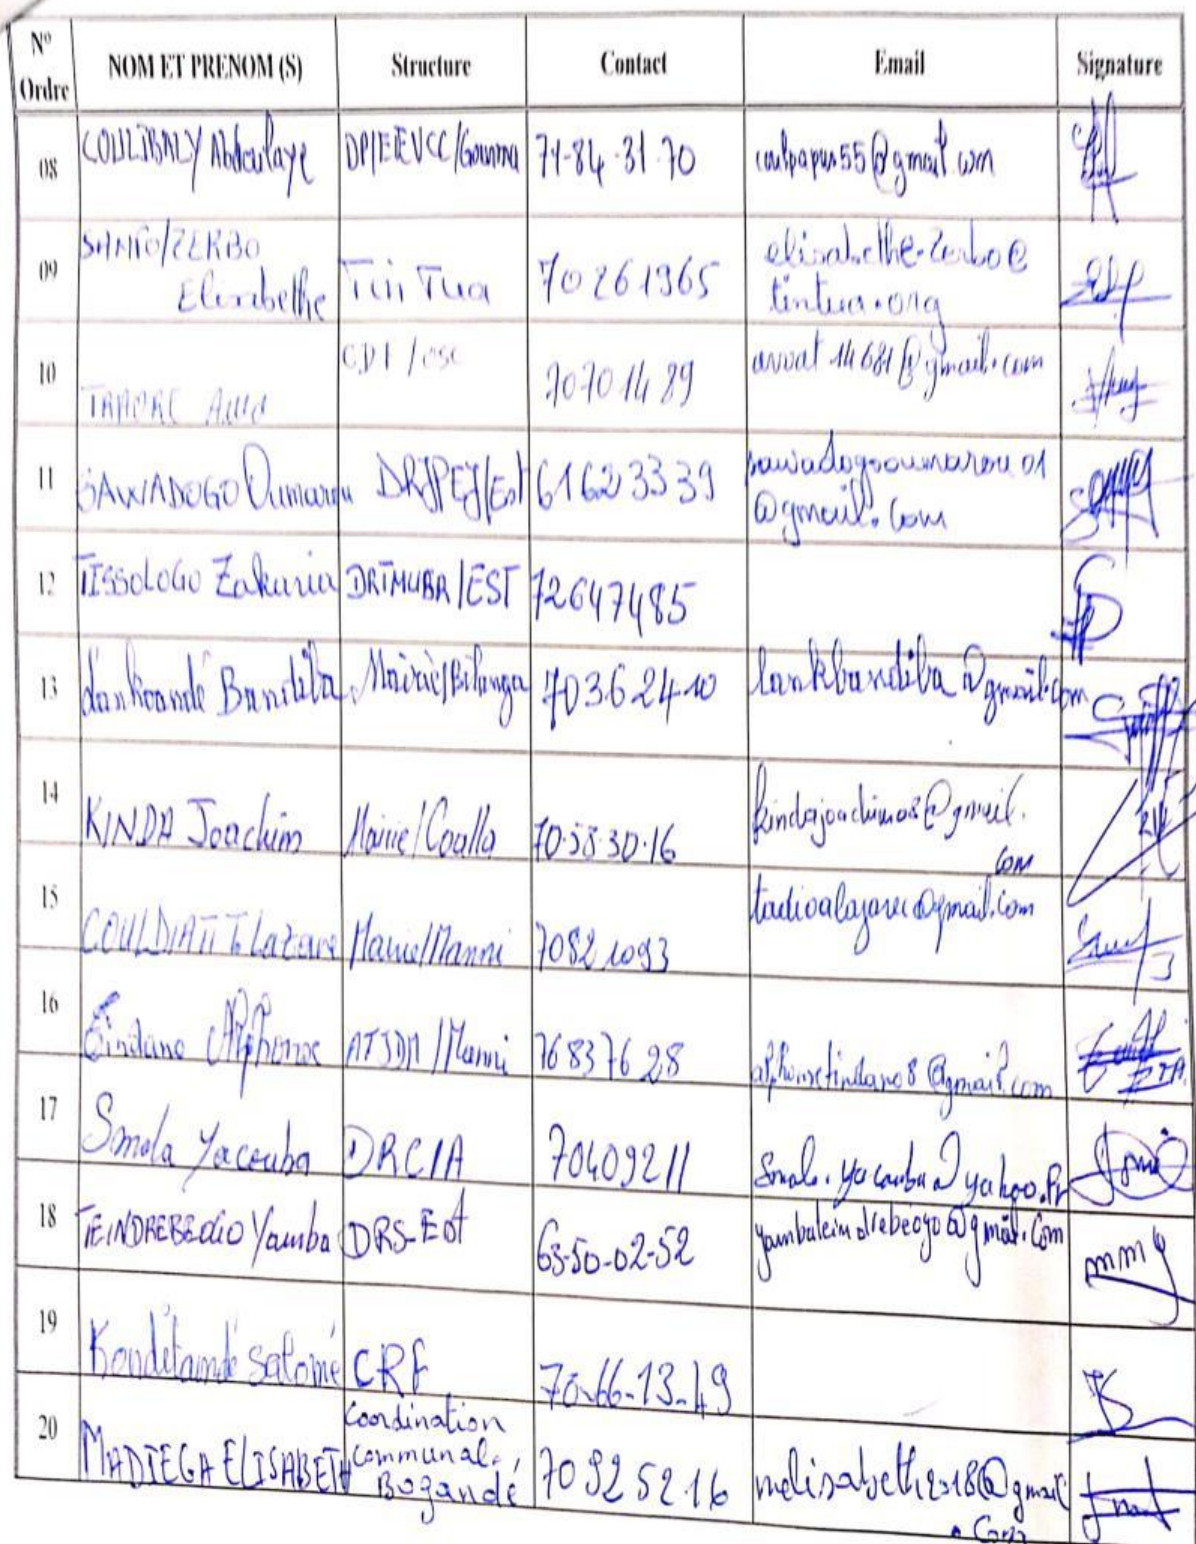 N° Ordre | NOM ET PRENOM (S) | Structure | Contact | Email | Signature
08 | COULIBALY Abdoulaye | DP/EEVCC/Gourma | 71-84-31-70 | coulpapus55@gmail.com
09 | SANFO/ZERBO Elisabethe | Tin Tua | 70261965 | elisabethe.zerbo@tintua.org
10 | TRAORE | CDF/OSC | 70701489 | @gmail.com
11 | SAWADOGO Oumarou | DRJPEJ/Est | 61623339 | sawadogooumarou01@gmail.com
12 | TISSOLOGO Zakaria | DRTMUSR/EST | 72647485
13 | Lankoandé Bandiba | Mairie/Bilanga | 70362410 | lankbandiba@gmail.com
14 | KINDA Joachim | Mairie/Coalla | 70.58.30.16 | kindajoachim08@gmail.com
15 | COULDIATI T. Lazare | Mairie/Manni | 70821093 | @gmail.com
16 | Tindano Alphonse | /Manni | 76837628 | alphonsetindano8@gmail.com
17 | Smola Yacouba | DRCIA | 70409211 | yahoo.fr
18 | TEINDREBEOGO Yamba | DRS-Est | 63-50-02-52 | yambateindrebeogo@gmail.com
19 | Salomé | CRF | 70-66-13-49
20 | MADIEGA ELISABETH | Coordination Communal, Bogandé | 70925216 | melisabeth2018@gmail.com